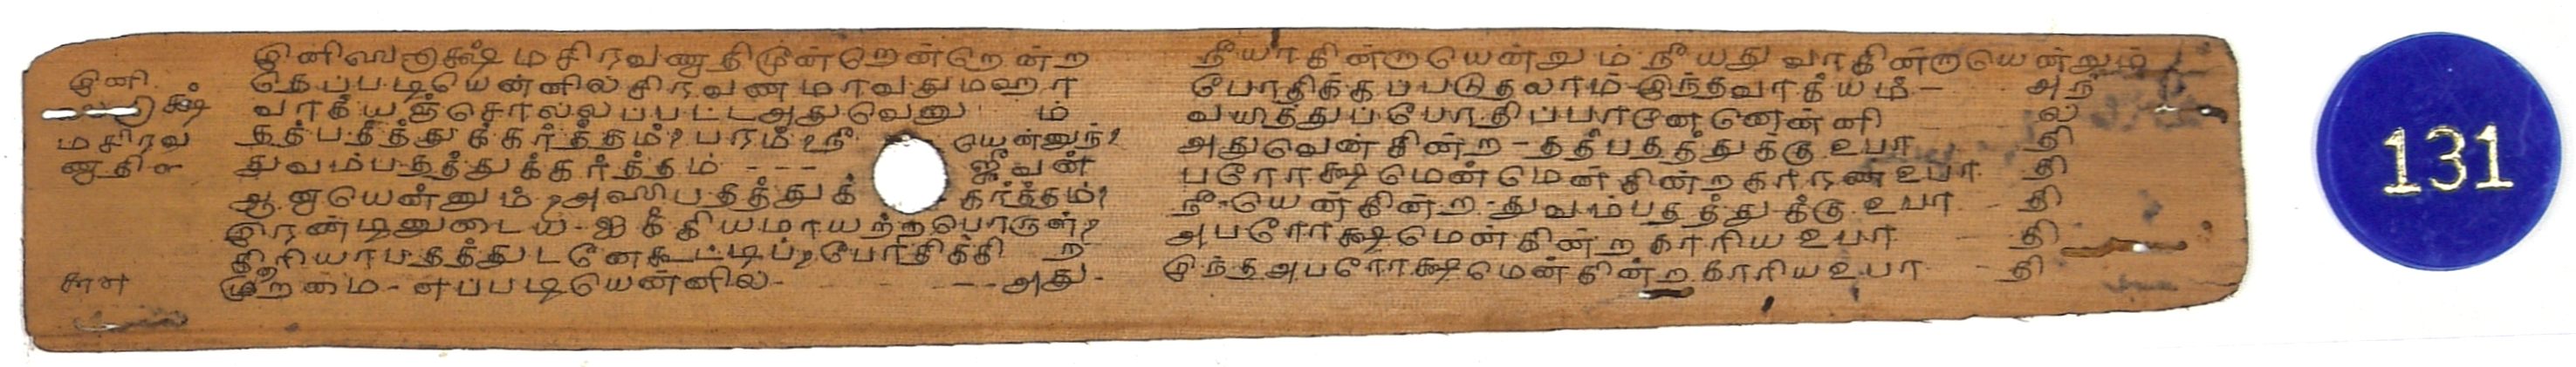 இனி
மசிரவ
ணாதி௩
௬௱
இனி மசிரவணாதிமூன்றென்றென்ற
தெப்படியென்னில்சிரவணமாவதுமஹா
வாக்யஞ்சொல்லப்பட்டஅதுவெனு ம்
தத்பதத்துக்கர்த்தம்? பரம்?நீ யென்னுந்?
துவம்பதத்துக்கர்த்தம் - - - ஜீவன்
ஆனாயென்னும்?அஸிபதத்துக் கர்த்தம்?
இரண்டினுடைய-ஐக்கியமாயற்றபொருள்?
கிரியாபதத்துடனேகூட்டிப்?போதிக்கி ற
முறமை-எப்படியென்னில்- - - அது-
நீயாகின்றாயென்றும்நீயதுவாகின்றாயென்றும்
போதிக்கப்படுதலாம்-இந்தவாக்யம்- அந்
வயித்துப்போதிப்பானேனென்னி ல்
அதுவென்கின்ற-தத்பதத்துக்குஉபா தி
பரோக்ஷமென்மென்கின்றகாரணஉபா தி
நீ-யென்கின்ற-துவம்பதத்துக்குஉபா தி
அபரோக்ஷமென்கின்றகாரியஉபா தி
இந்தஅபரோக்ஷமென்கின்றகாரியஉபா தி
131